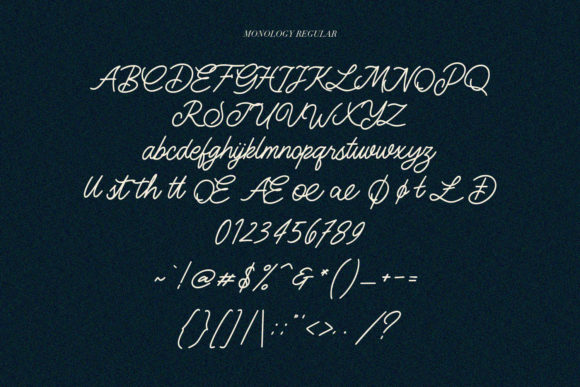 MONOLOGY REGULAR
ABCDEFGHIJKLMNOPQ
RSTUVWXYZ
abcdefghijklmnopqrstuvwxyz
ll st th tt Œ Æ œ æ Ø ø ŧ Ł Đ
0123456789
~`!@#$%^&*()_+-=
{}[]/|\:;"'<>,./?